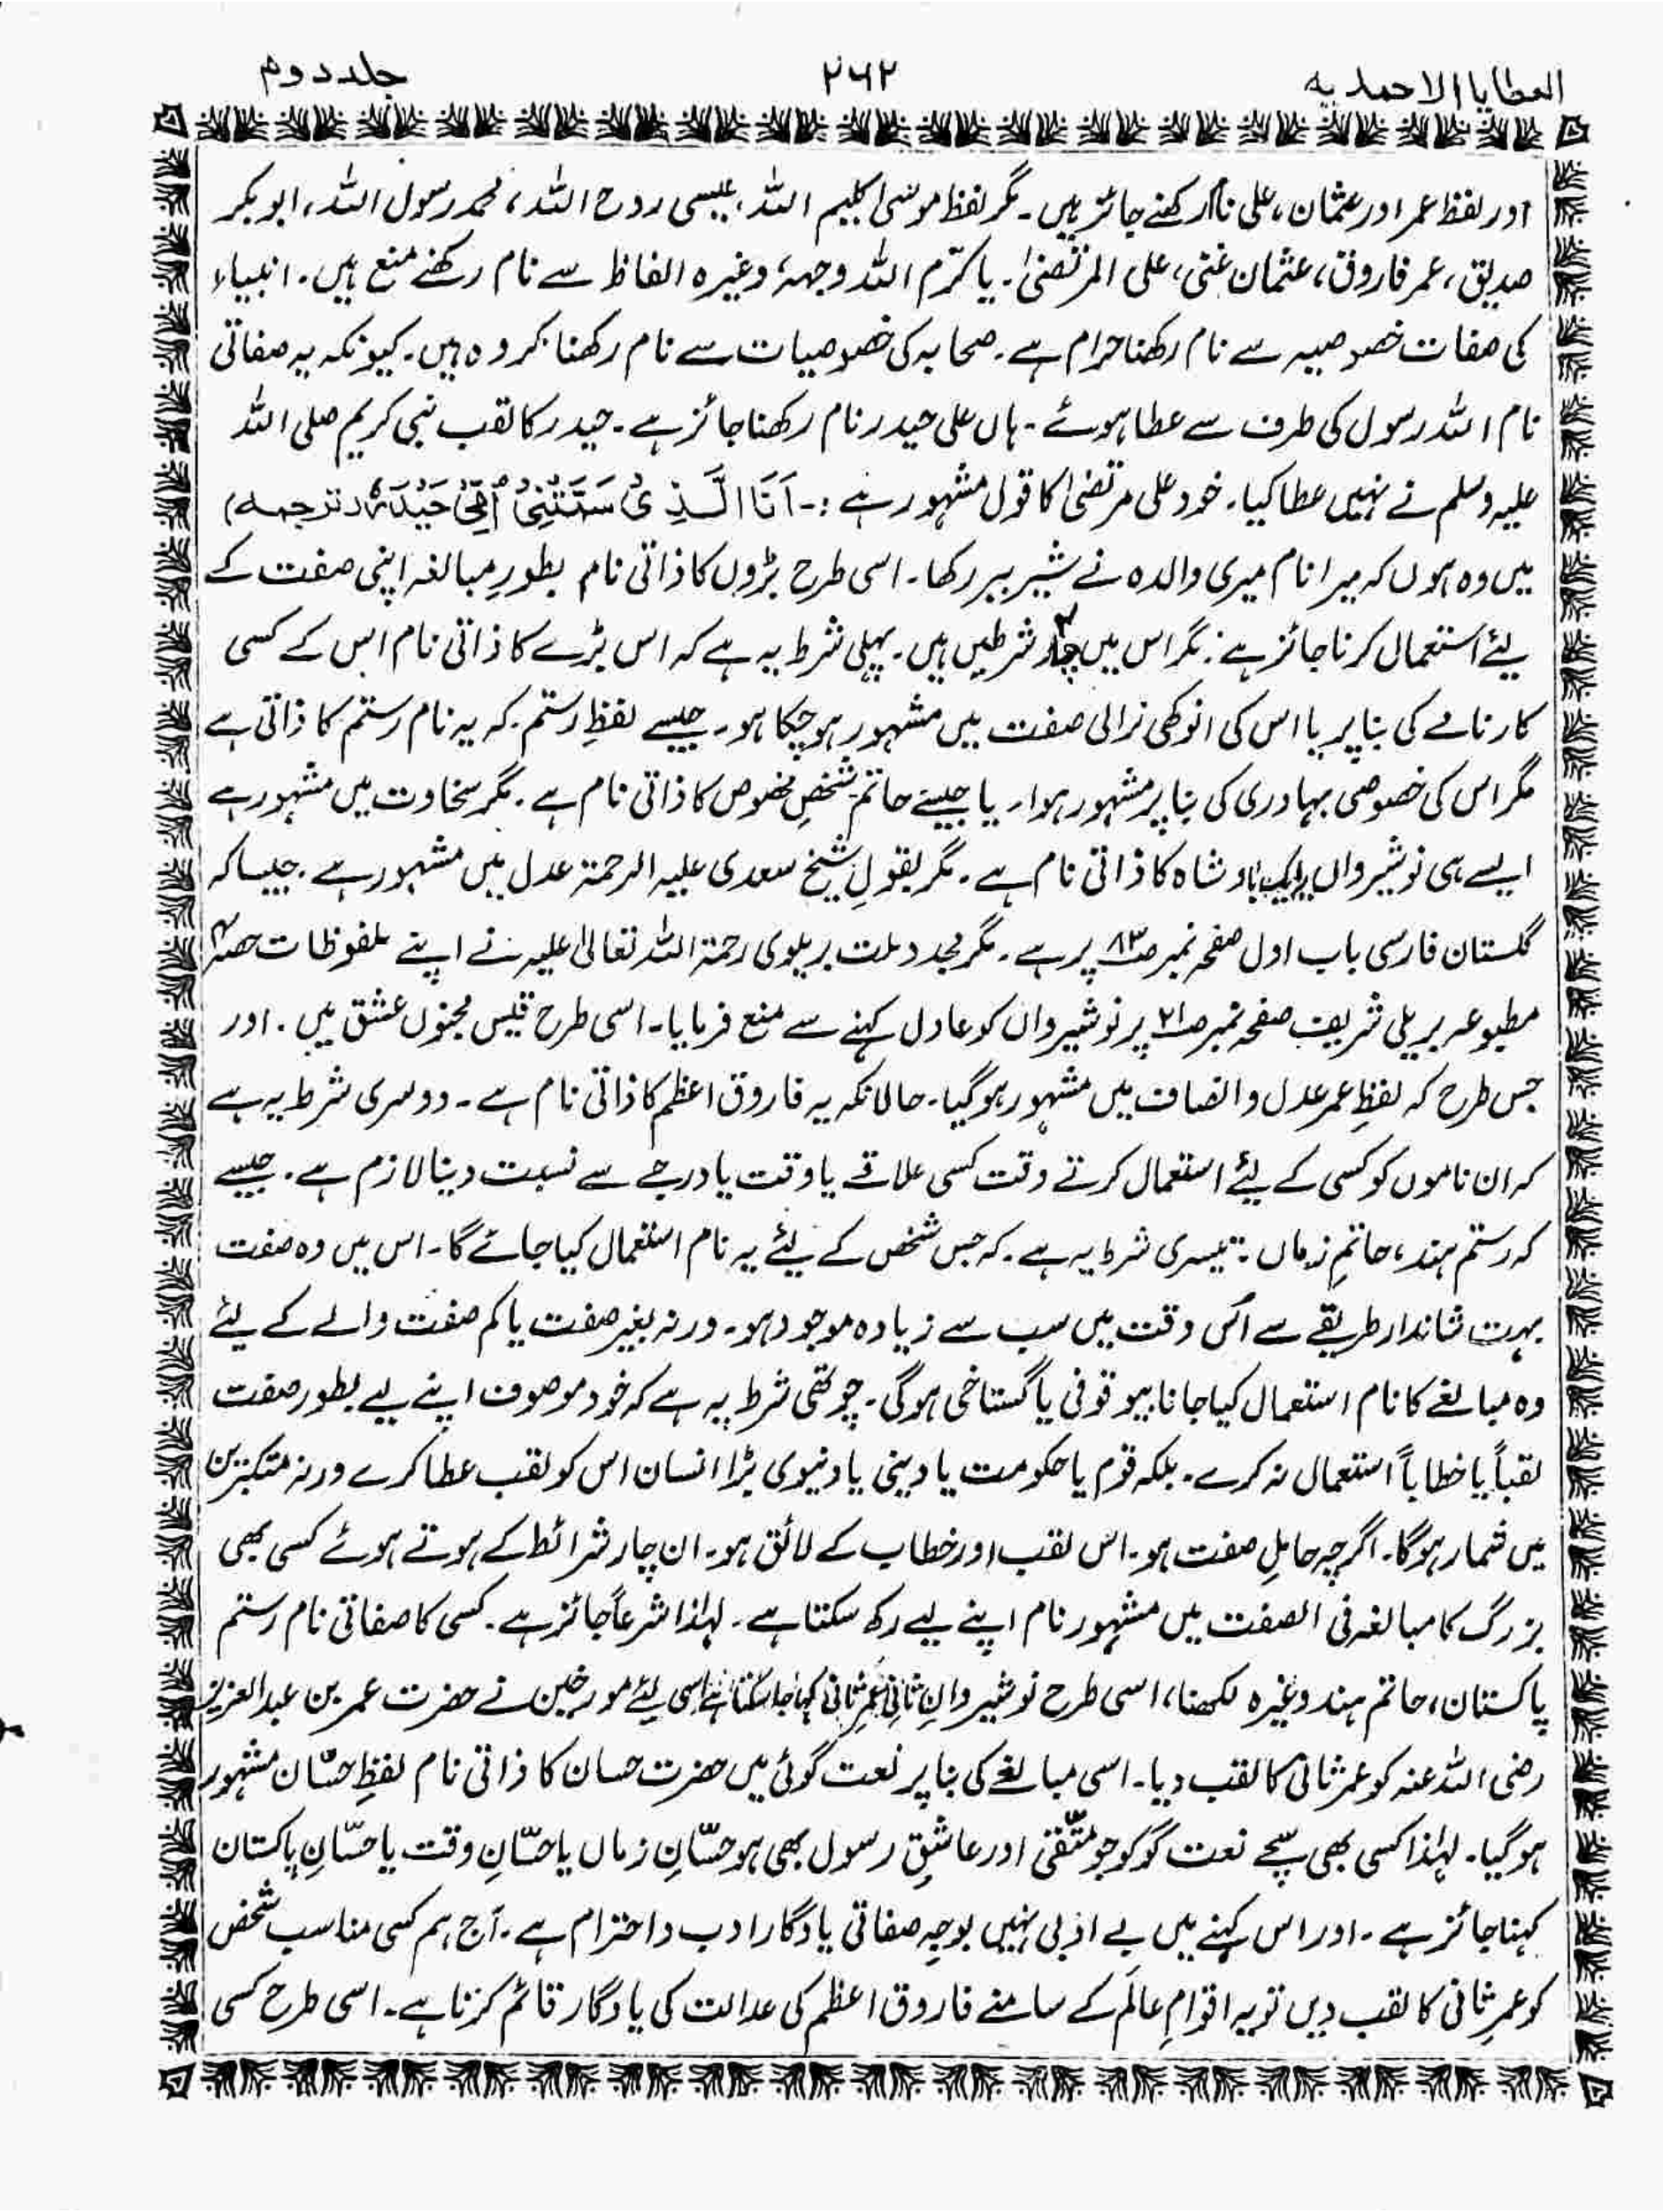 العطایا الاحمدیہ ۲۶۲ جلد دوم
اور لفظ عمر اور عثمان، علی نام رکھنے جائز ہیں۔ مگر لفظ موسٰی کلیم اللہ، عیسی روح اللہ، محمد رسول اللہ، ابو بکر
صدیق، عمر فاروق، عثمان غنی، علی المرتضیٰ۔ یا کرّم اللہ وجہہٗ وغیرہ الفاظ سے نام رکھنے منع ہیں۔ انبیاء
کی صفات خصوصیہ سے نام رکھنا حرام ہے۔ صحابہ کی خصوصیات سے نام رکھنا مکروہ ہیں۔ کیونکہ یہ صفاتی
نام اللہ رسول کی طرف سے عطا ہوئے۔ ہاں علی حیدر نام رکھنا جائز ہے۔ حیدر کا لقب نبی کریم صلی اللہ
علیہ وسلم نے نہیں عطا کیا۔ خود علی مرتضیٰ کا قول مشہور ہے :۔ اَنَا الَّذِیْ سَمَّتْنِیْ اُمِّیْ حَیْدَرَہْ (ترجمہ)
میں وہ ہوں کہ میرا نام میری والدہ نے شیر ببر رکھا۔ اسی طرح بڑوں کا ذاتی نام بطورِ مبالغہ اپنی صفت کے
لئے استعمال کرنا جائز ہے۔ مگر اس میں چار ۴ شرطیں ہیں۔ پہلی شرط یہ ہے کہ اس بڑے کا ذاتی نام اس کے کسی
کارنامے کی بنا پر یا اس کی انوکھی نرالی صفت میں مشہور ہو چکا ہو۔ جیسے لفظِ رستم۔ کہ یہ نام رستم کا ذاتی ہے
مگر اس کی خصوصی بہادری کی بنا پر مشہور ہوا۔ یا جیسے حاتم شخصِ مخصوص کا ذاتی نام ہے۔ مگر سخاوت میں مشہور ہے
ایسے ہی نوشیرواں ایک بادشاہ کا ذاتی نام ہے۔ مگر بقولِ شیخ سعدی علیہ الرحمۃ عدل میں مشہور ہے۔ جیسا کہ
گلستان فارسی باب اول صفحہ نمبر صـ۸۳ پر ہے۔ مگر مجدد ملت بریلوی رحمۃ اللہ تعالیٰ علیہ نے اپنے ملفوظات حصہ ۴
مطبوعہ بریلی شریف صفحہ نمبر صـ۲۱ پر نوشیرواں کو عادل کہنے سے منع فرمایا۔ اسی طرح قیس مجنوں عشق میں۔ اور
جس طرح کہ لفظِ عمر عدل و انصاف میں مشہور ہو گیا۔ حالانکہ یہ فاروق اعظم کا ذاتی نام ہے۔ دوسری شرط یہ ہے
کہ ان ناموں کو کسی کے لیئے استعمال کرتے وقت کسی علاقے یا وقت یا درجے سے نسبت دینا لازم ہے۔ جیسے
کہ رستم ہند، حاتمِ زماں : تیسری شرط یہ ہے۔ کہ جس شخص کے لیئے یہ نام استعمال کیا جائے گا۔ اس میں وہ صفت
بہت شاندار طریقے سے اُس وقت میں سب سے زیادہ موجود ہو۔ ورنہ بغیر صفت یا کم صفت والے کے لیئے
وہ مبالغے کا نام استعمال کیا جانا بیوقوفی یا گستاخی ہوگی۔ چوتھی شرط یہ ہے کہ خود موصوف اپنے لیے بطور صفت
لقباً یا خطاباً استعمال نہ کرے۔ بلکہ قوم یا حکومت یا دینی یا دنیوی بڑا انسان اس کو لقب عطا کرے ورنہ متکبرین
میں شمار ہوگا۔ اگرچہ حاملِ صفت ہو۔ اس لقب اور خطاب کے لائق ہو۔ ان چار شرائط کے ہوتے ہوئے کسی بھی
بزرگ کا مبالغہ فی الصفت میں مشہور نام اپنے لیے رکھ سکتا ہے۔ لہٰذا شرعاً جائز ہے۔ کسی کا صفاتی نام رستم
پاکستان، حاتم ہند وغیرہ لکھنا، اسی طرح نوشیروانِ ثانی عمر ثانی کہا جا سکتا ہے اسی لیئے مورخین نے حضرت عمر بن عبدالعزیز
رضی اللہ عنہ کو عمر ثانی کا لقب دیا۔ اسی مبالغے کی بنا پر نعت گوئی میں حضرت حسان کا ذاتی نام لفظِ حسّان مشہور
ہو گیا۔ لہٰذا کسی بھی سچے نعت گو کو جو متّقی اور عاشقِ رسول بھی ہو حسّانِ زماں یا حسّانِ وقت یا حسّانِ پاکستان
کہنا جائز ہے۔ اور اس کہنے میں بے ادبی نہیں بوجہِ صفاتی یادگار ادب و احترام ہے۔ آج ہم کسی مناسب شخص
کو عمرِ ثانی کا لقب دیں تو یہ اقوامِ عالَم کے سامنے فاروق اعظم کی عدالت کی یادگار قائم کرنا ہے۔ اسی طرح کسی